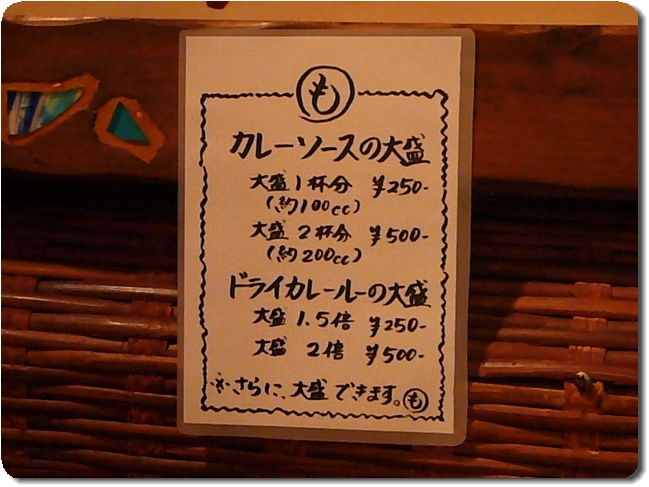 も
カレーソースの大盛
大盛1杯分 ¥250-
(約100cc)
大盛2杯分 ¥500-
(約200cc)
ドライカレールーの大盛
大盛 1.5倍 ¥250-
大盛 2倍 ¥500-
※さらに、大盛できます。も